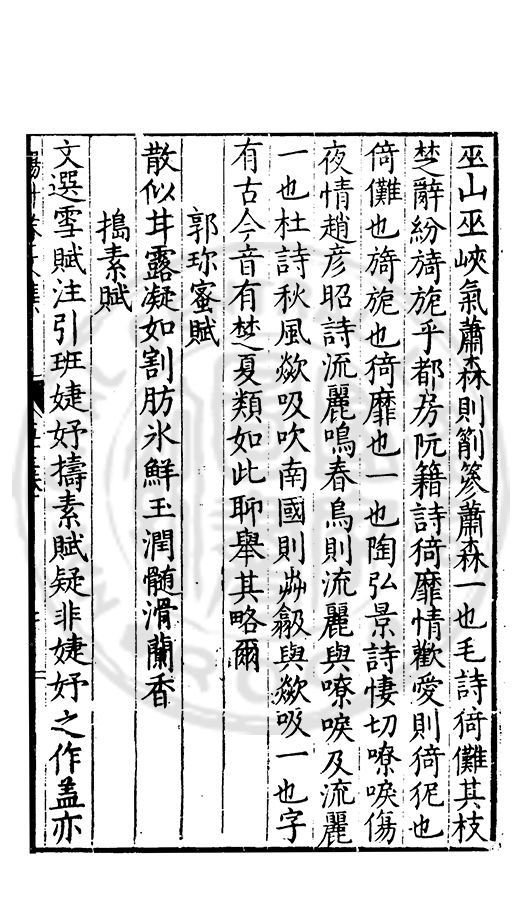 巫山巫峽氣蕭森則箾篸蕭森一也毛詩猗儺其枝
楚辭紛旖旎乎都房阮籍詩猗靡情歡愛則猗狔也
猗儺也旖旎也猗靡也一也陶弘景詩悽切嘹唳傷
夜情趙彦昭詩流麗鳴春鳥則流麗與嘹唳及流麗
一也杜詩秋風歘吸吹南國則歘翕與歘吸一也字
有古今音有楚夏類如此聊舉其略爾
郭珎蜜賦
散似甘露凝如割肪氷鮮玉潤髓滑蘭香
搗素賦
文選雪賦注引班婕妤擣素賦疑非婕妤之作盖亦